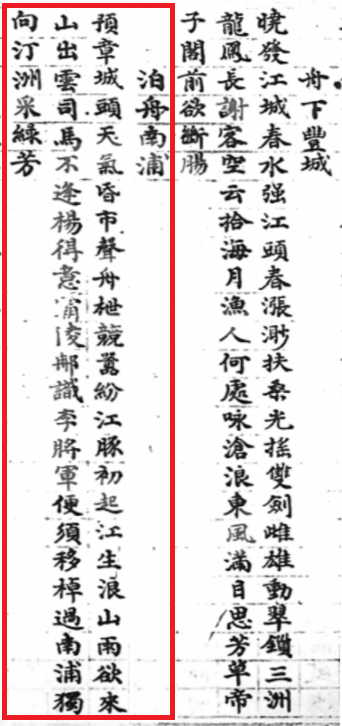 舟下豐城
曉發江城春水强江頭春漲渺扶桑光搖雙劍雌雄動翠鎖三洲
龍鳳長謝客空云拾海月漁人何處咏滄浪東風滿目思芳草帝
子閣前欲斷腸
泊舟南浦
預章城頭天氣昏市聲舟枻競囂紛江豚初起江生浪山雨欲來
山出雲司馬不逢楊得意甯淩郍識李將軍便須移棹過南浦獨
向汀洲采練芳